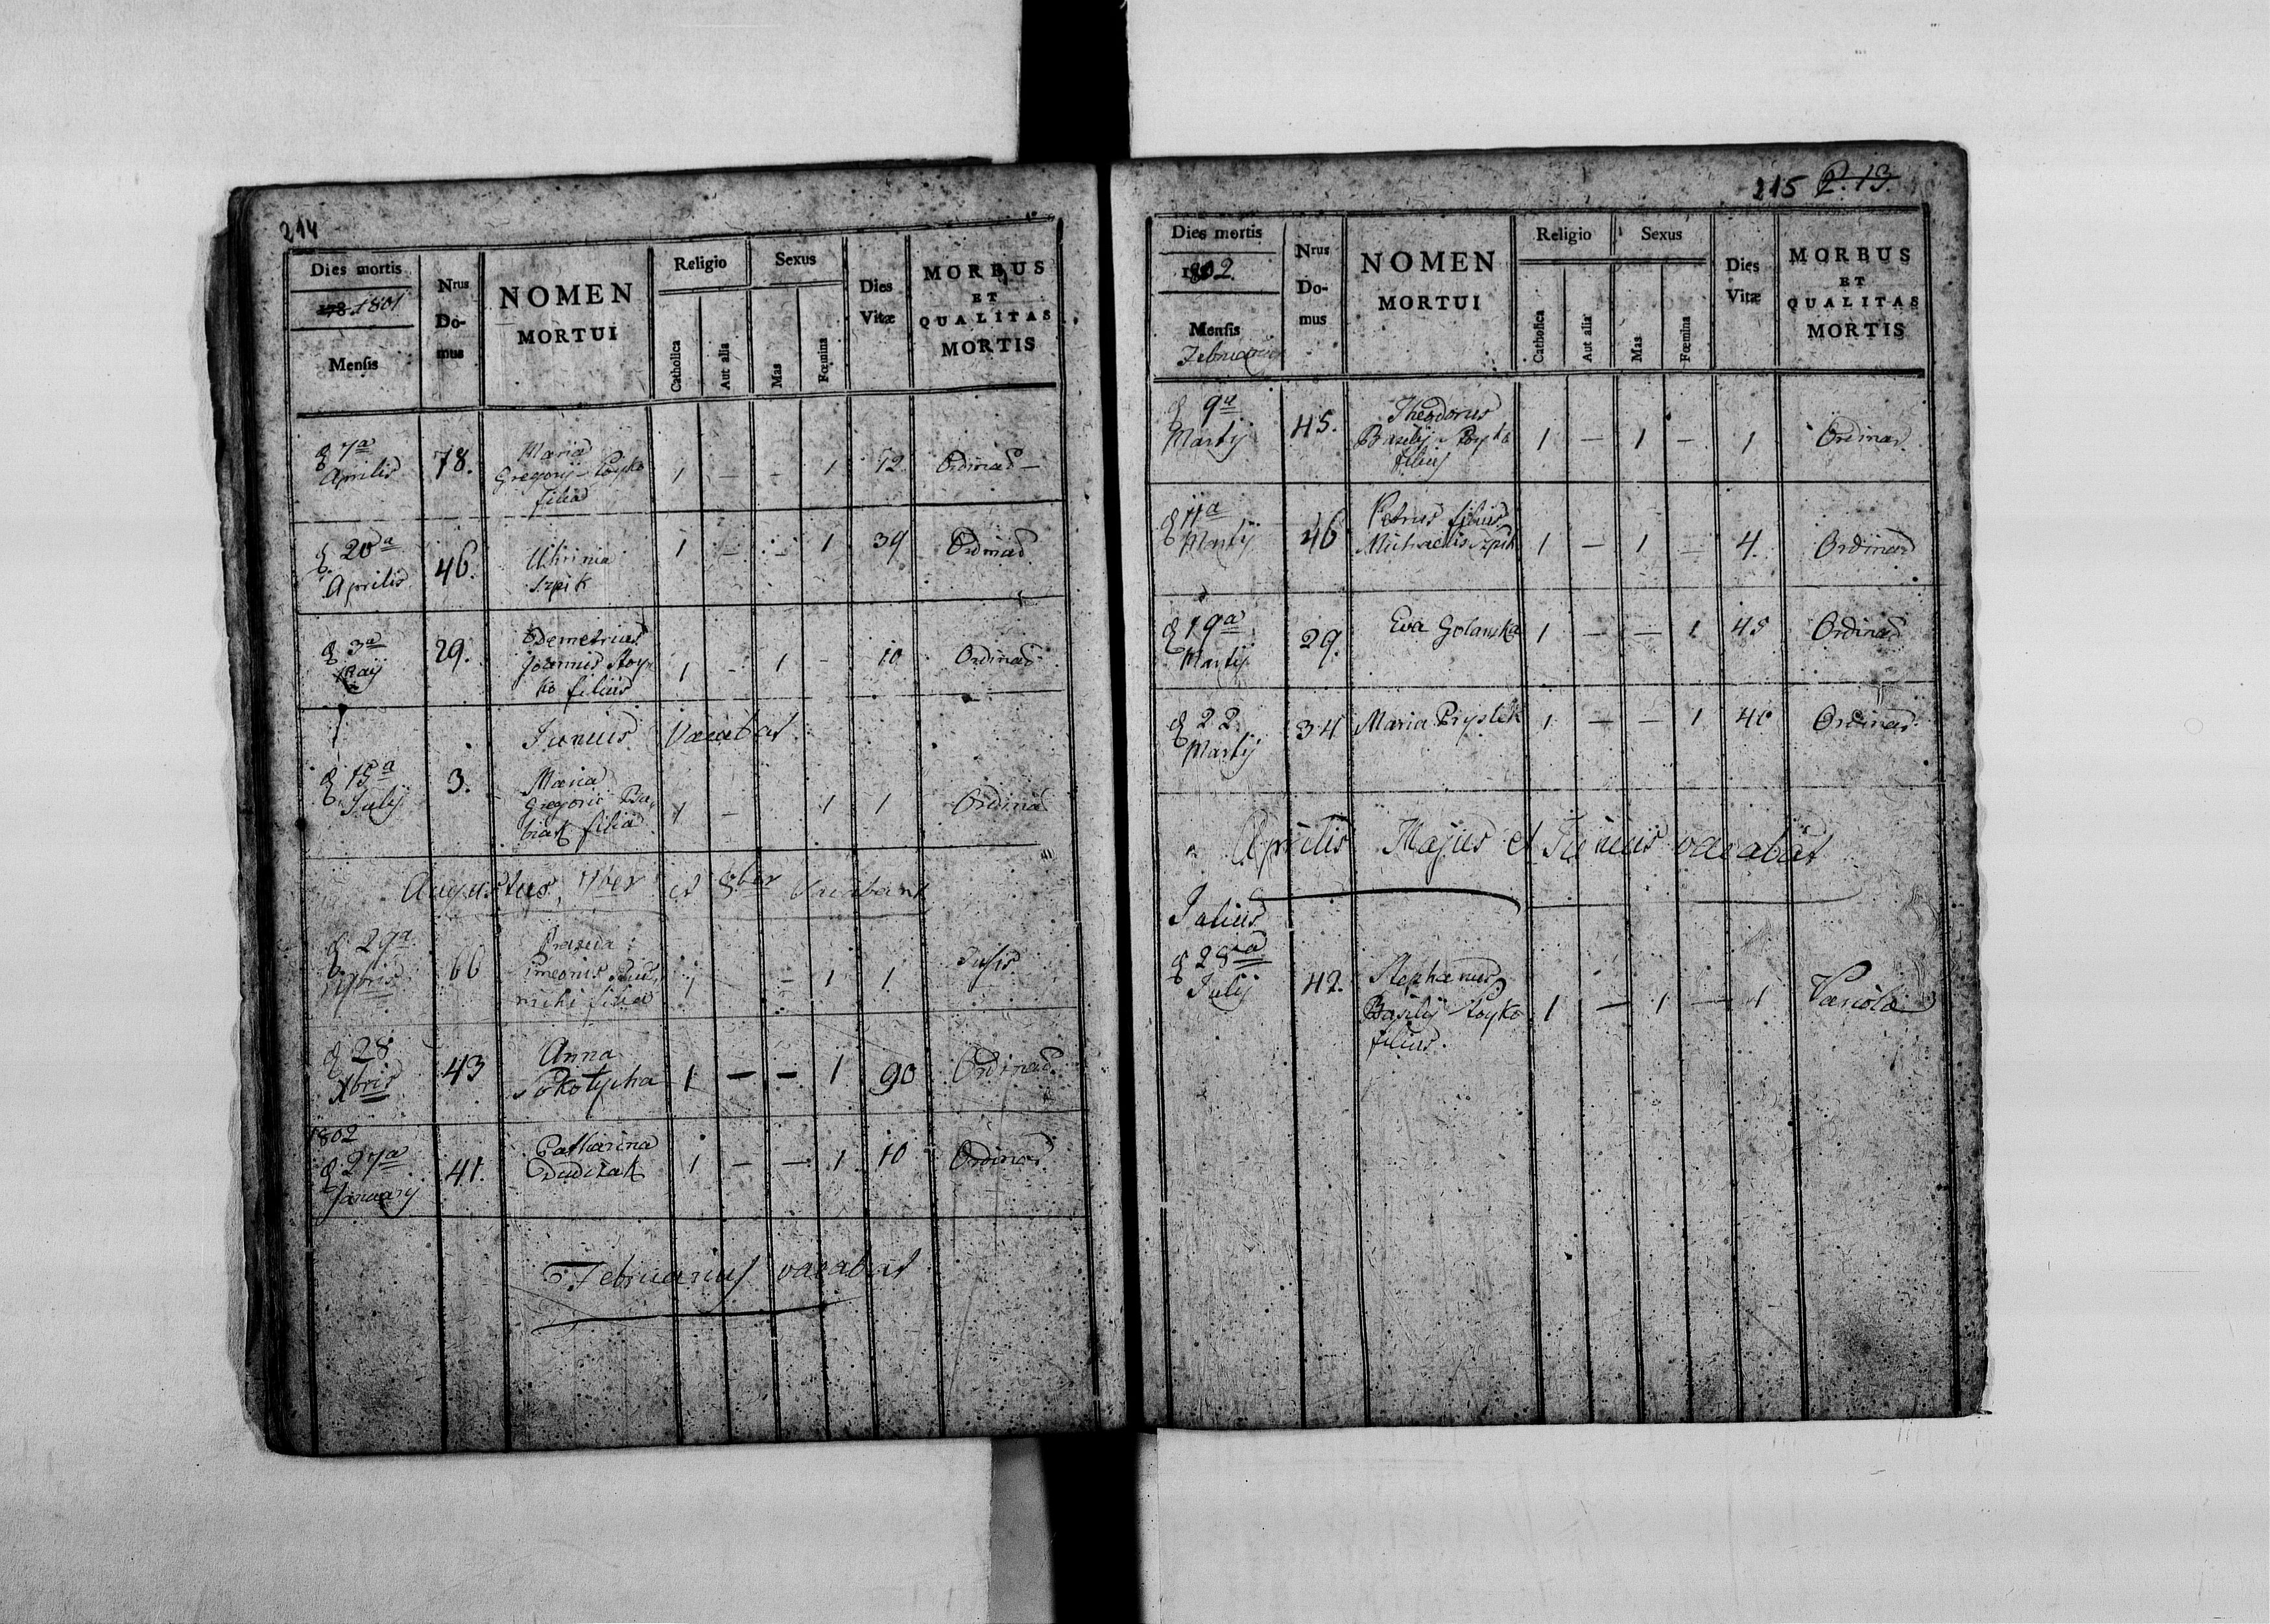 214
Dies mortis
1801
Mensis
Nrus
Do-
mus
NOMEN
MORTUI
Religio
Catholica
Aut alia
Sexus
Mas
Fœmina
Dies
Vitæ
MORBUS
ET
QUALITAS
MORTIS
7a
Aprilis
78.
Maria
Gregorij Stoyko
filia
1 — — 1 12 Ordinar
20a
Aprilis
46.
Uhrinia
Szpik
1 — — 1 39 Ordinar
3a
Maij
29.
Demetrius
Joannis Stoy-
ko filius
1 - 1 - 10 Ordinar
Junius Vacabat
15a
Julij
3.
Maria
Gregorii Ba-
biak filia
1 — 1 1 Ordinar
Augustus, 7ber et 8ber Vacabant
29a
66
Simeonis
filia
1 — 1 1 Tussis
28
Xbris
43
Anna
Sokotycha
1 — — 1 90 Ordinar
1802
27a
January
41.
Catharina
Dudczak
1 — — 1 10 Ordinar
Februarius vacabat
215 P. 13.
Dies mortis
1802.
Mensis
Februarius
Nrus
Do-
mus
NOMEN
MORTUI
Religio
Catholica
Aut alia
Sexus
Mas
Fœmina
Dies
Vitæ
MORBUS
ET
QUALITAS
MORTIS
9a
Martij
45.
Theodorus
Basilij Stoyko
filius
1 — 1 — 1 Ordinar
11a
Martij
46
Petrus filius
Michaelis Szpik
1 — 1 — 4. Ordinar
19a
Martij
29.
Eva Golanska
1 — — 1 45 Ordinar
22
Martij
34
Maria Prystek
1 — — 1 40 Ordinar
Aprilis Majus et Junius vacabat
Julius
28va
Julij
42.
Stephanus
Basilij Stoyko
filius.
1 — 1 — 1 Variola